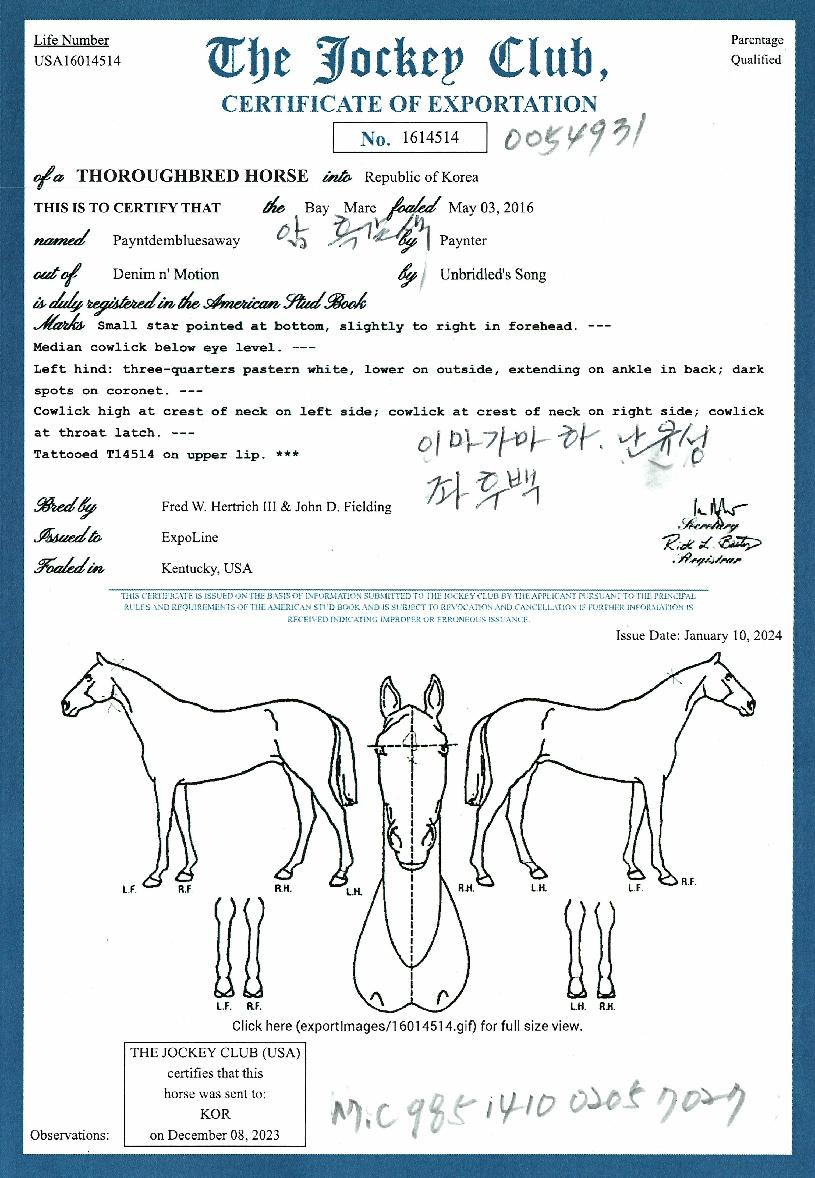 Life Number
USA16014514
Parentage
Qualified
The Jockey Club,
CERTIFICATE OF EXPORTATION
No. 1614514 0054931
of a THOROUGHBRED HORSE into Republic of Korea
THIS IS TO CERTIFY THAT the Bay Mare foaled May 03, 2016
named Payntdembluesaway 암 by Paynter
out of Denim n' Motion by Unbridled's Song
is duly registered in the American Stud Book
Marks Small star pointed at bottom, slightly to right in forehead. ---
Median cowlick below eye level. ---
Left hind: three-quarters pastern white, lower on outside, extending on ankle in back; dark
spots on coronet. ---
Cowlick high at crest of neck on left side; cowlick at crest of neck on right side; cowlick
at throat latch. ---
Tattooed T14514 on upper lip. ***
이마가마 하. 난유성
좌후백
Bred by Fred W. Hertrich III & John D. Fielding
Issued to ExpoLine
Foaled in Kentucky, USA
Secretary
Registrar
THIS CERTIFICATE IS ISSUED ON THE BASIS OF INFORMATION SUBMITTED TO THE JOCKEY CLUB BY THE APPLICANT PURSUANT TO THE PRINCIPAL
RULES AND REQUIREMENTS OF THE AMERICAN STUD BOOK AND IS SUBJECT TO REVOCATION AND CANCELLATION IF FURTHER INFORMATION IS
RECEIVED INDICATING IMPROPER OR ERRONEOUS ISSUANCE.
Issue Date: January 10, 2024
L.F. R.F R.H. L.H. R.H. L.H. L.F. R.F.
L.F. R.F. L.H. R.H.
Click here (exportImages/16014514.gif) for full size view.
THE JOCKEY CLUB (USA)
certifies that this
horse was sent to:
KOR
on December 08, 2023
Observations:
M.C 985 1410 0205 7027